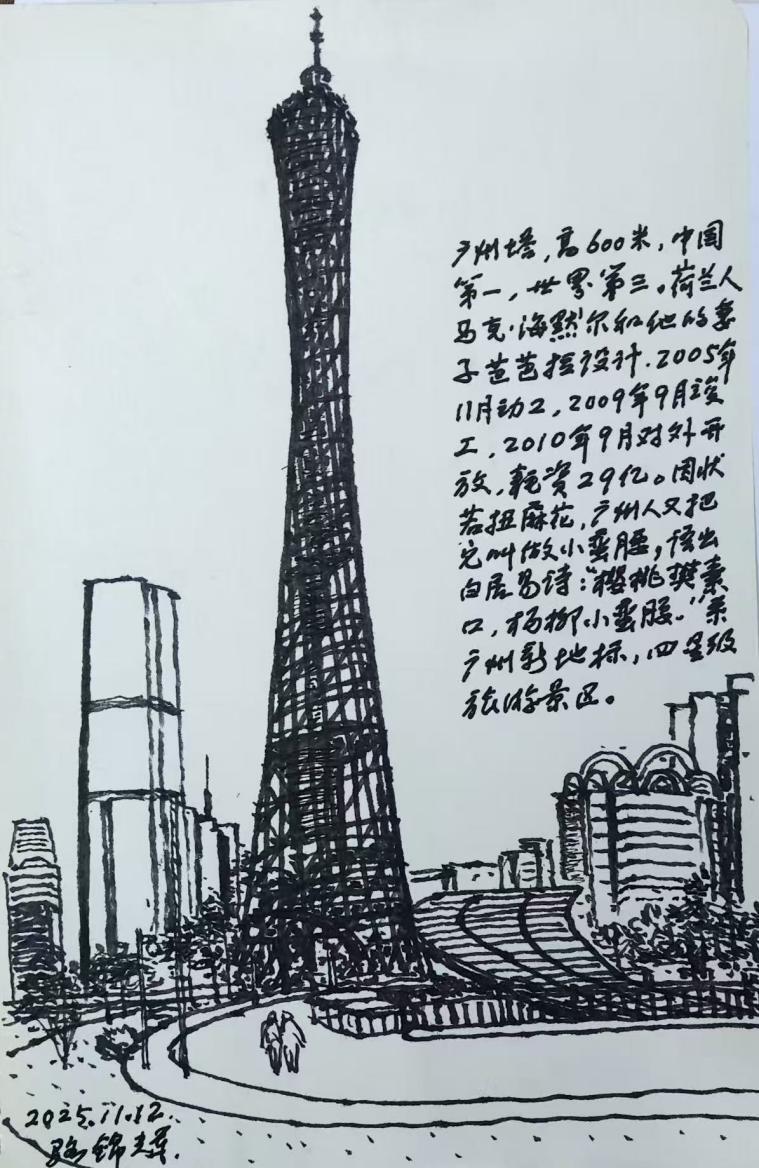 广州塔,高600米,中国
第一,世界第三。荷兰人
马克·海默尔和他的妻
子芭芭拉设计.2005年
11月动工,2009年9月竣
工,2010年9月对外开
放,耗资29亿。因状
若扭麻花,广州人又把
它叫做小蛮腰,语出
白居易诗:“樱桃樊素
口,杨柳小蛮腰。”系
广州新地标,四星级
旅游景区。
2025.11.12.
锦